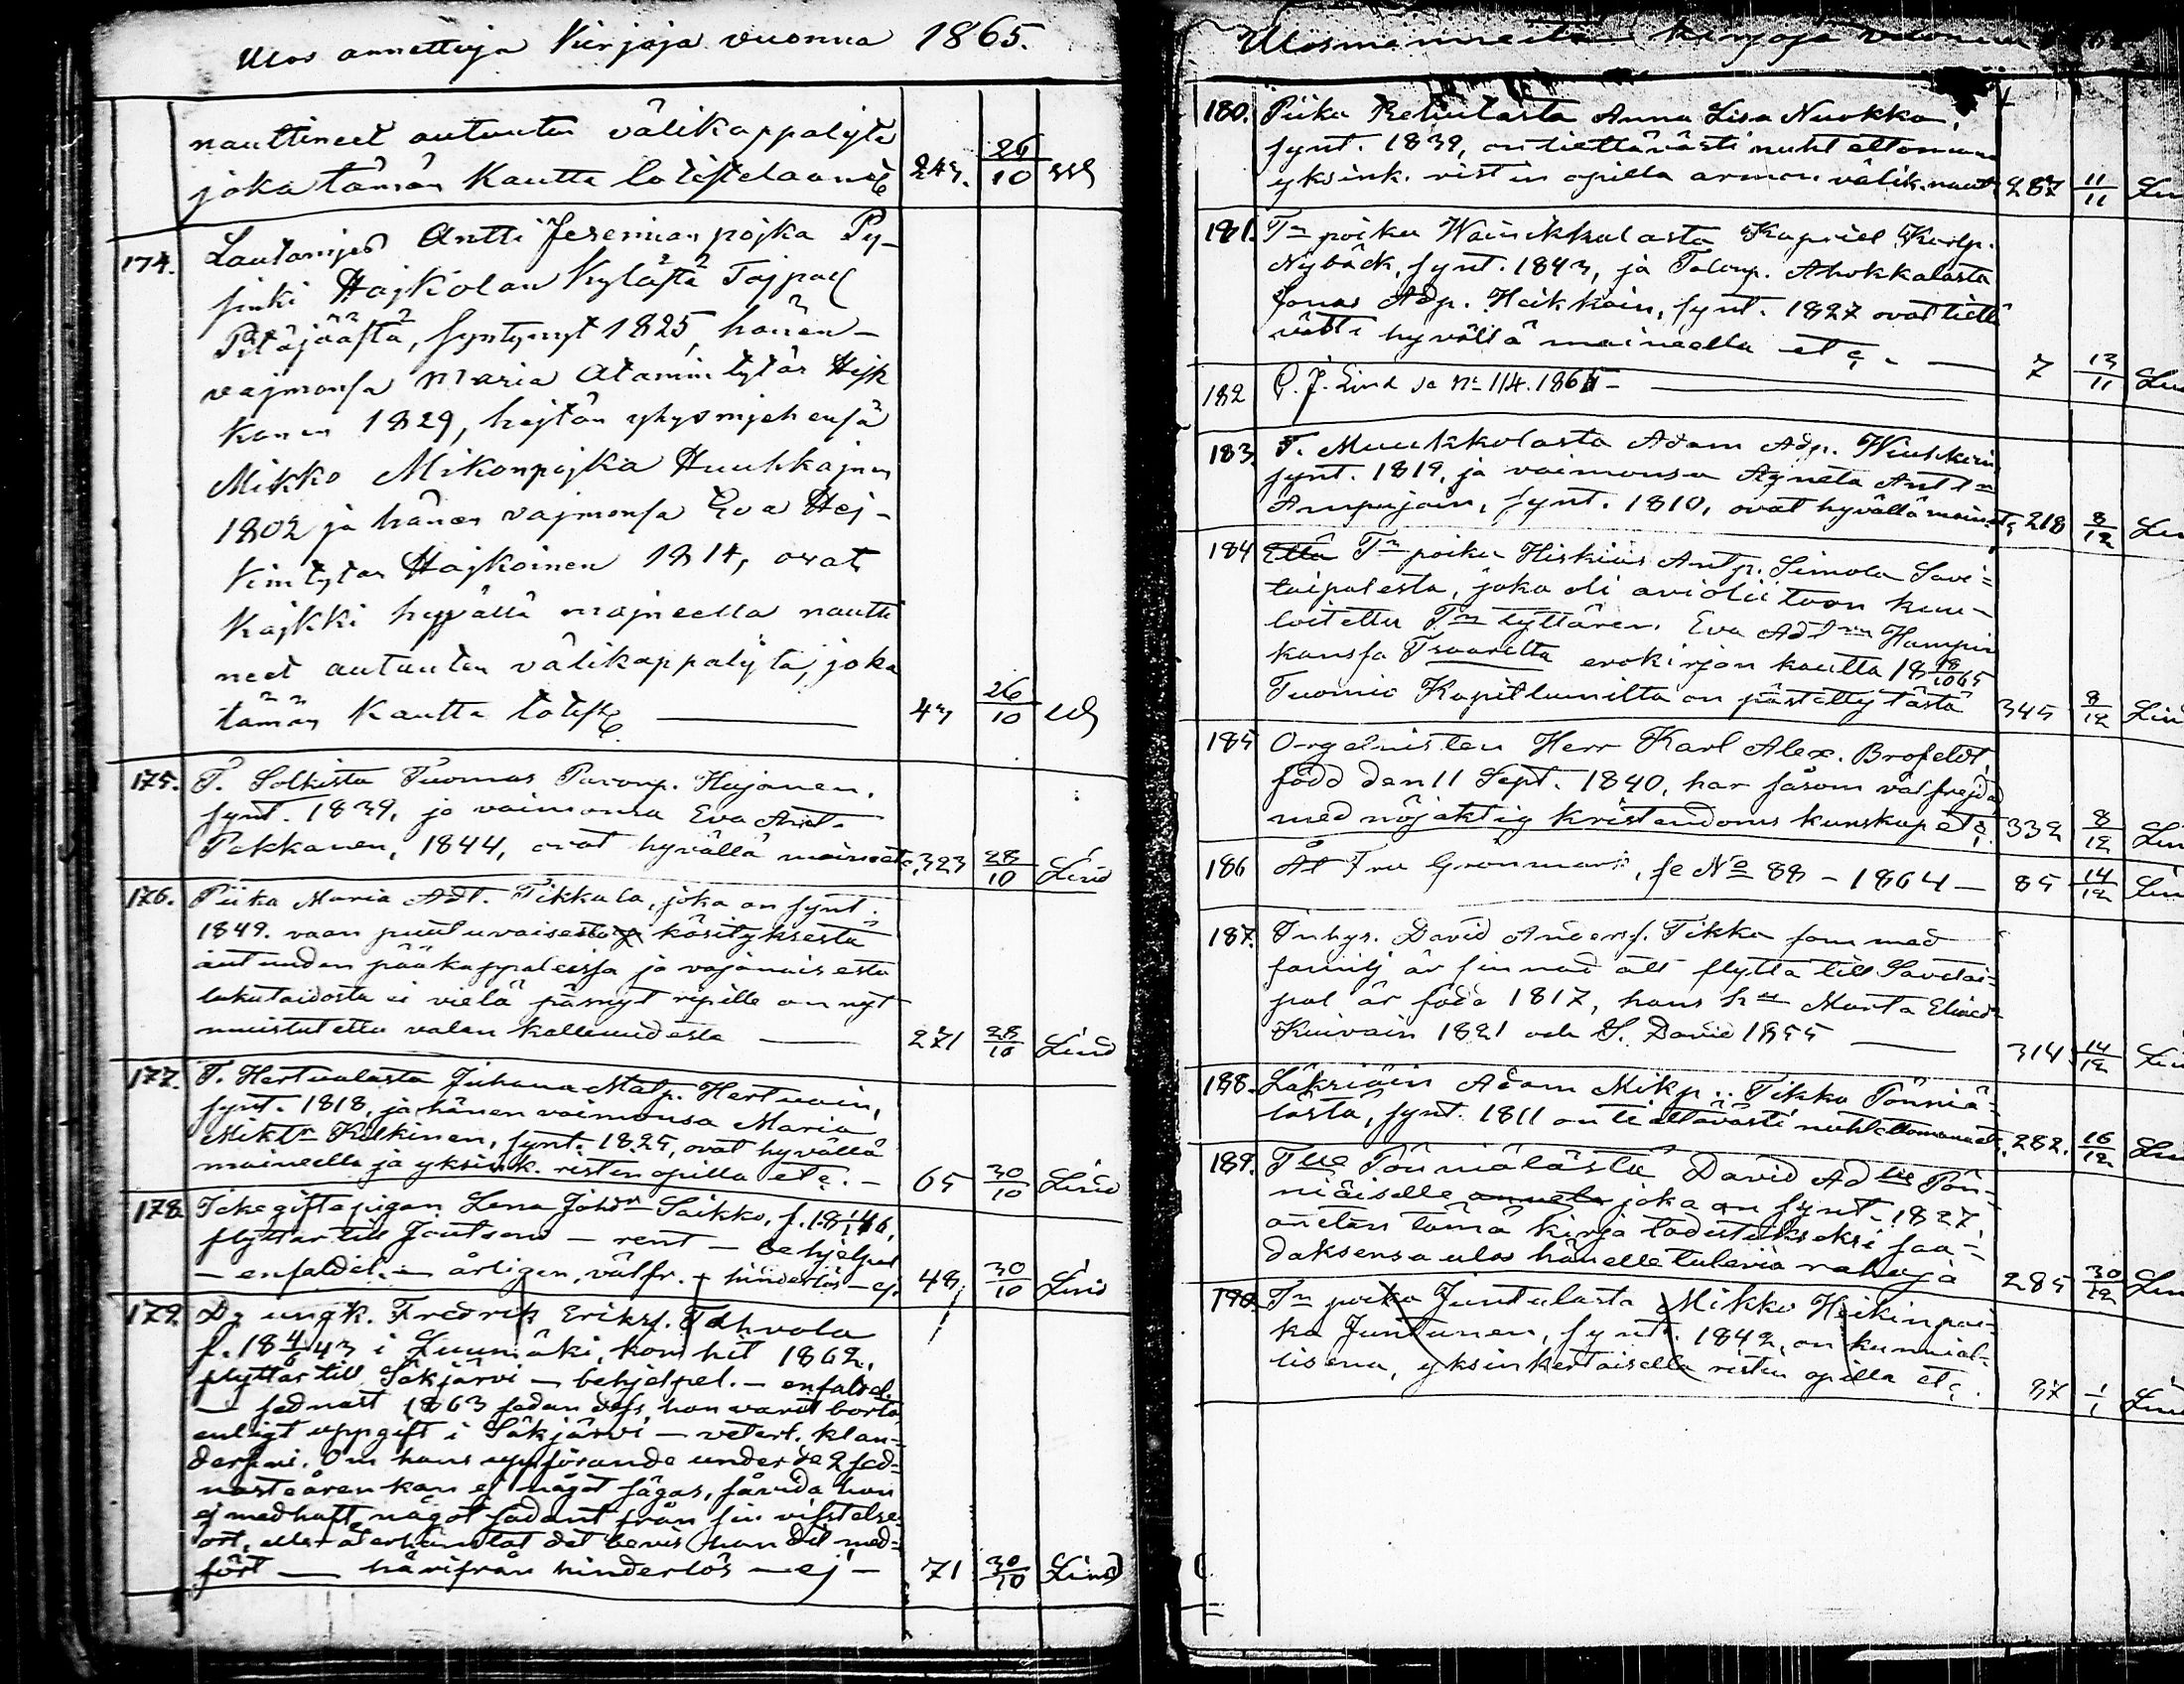 Ulos annettuja Kirjoja vuonna 1865.
nauttineet autuuten välikappalejta
joka tämän Kautta lotistetaan etc 243. 26/10
174. Lautamjes Antti Jeremian pojka Py-
sinki Hajkolan Kylästä Tajpal
Pitäjäästä, syntynyt 1825, hänen
vajmonsa Maria Atamin tytär Hejk
konen 1829, hejtän yhysmjehensä
Mikko Mikonpojka Huuhkajnen
1802 ja hänen vajmonsa Eva Hej-
kintytar Hajkoinen 1814, ovat
Kajkki hyvällä majneella nautti
neet autuuten välikappalejta, joka
tämän Kautta totist 43 26/10
175. T. Solkista Tuomas Paavop. Hujanen,
synt. 1839, ja vaimonsa Eva Ant.
Pekkanen, 1844, ovat hyvällä maineetc. 323 28/10 Lind
176. Piika Maria Adt. Tikkala, joka on synt.
1849. vaan puutuvaisesta käsityksestä
autuuden pääkappaleissa ja vajanaisesta
lukutaidosta ei vielä päsnyt ripille on nyt
muistutettu valan kalleudesta 271 28/10 Lind
177. T. Hertualasta Juhana Matp. Hertuain,
synt. 1818, ja hänen vaimonsa Maria
Miktr Kulkinen, synt. 1825, ovat hyvällä
maineella ja yksink. ristin opilla etc. - 65 30/10 Lind
178. Ickegiftapigan Lena Johdr Saikko, f. 18 46,
flyttar till Joutseno - rent - behjelpel
- enfaldel. - ärligen, välfr. - hinderlös - ej. 48 30/10 Lind
179. Dg ungk. Fredrik Eriks. Tahvola
f. 18 4/6 43 i Luumäki, kom hit 1862,
flyttar till Säkjärvi - behjelpel. - enfaldel.
- sednast 1863 sedan dess han varit borta
enligt uppgift i Säkjärvi - veterl. klan-
derfri. Om hans uppförande under de 2 sed-
nasteåren kan ej något sägas, såvida han
ej medhaft något sådant från sin vistelse-
ort, eller återhämtat det bevis han dit med-
fört - härifrån hinderlös - ej - 71 30/10 Lind
Ulosmenneitä kirjoja vuonna
180. Piika Anna Lisa Nuokka,
synt. 1839, on tiettävästi nuhteettomana
yksink. ristin opilla armon välik. naut. 287 11/11
181. Tn poika Wainikkalasta Kapriel Karlp.
Nybäck, synt. 1843, ja Talonp. Ahokkalasta
Jonas Adp. Heikkain, synt. 1827 ovat tiettä
västi hyvällä maineella etc. - 7 13/11
182 P. J. Lind se No 114. 1865 -
183. T. Muukkolasta Adam Adp.
synt. 1819, ja vaimonsa Agneta Anttr
Ampujain, synt. 1810, ovat hyvällä mainetc. 218 8/12
184 Että Tn poika Hiskias Antp. Simola Savi=
taipalesta, joka oli avioliittoon kuu-
loitettu Tn tyttären Eva Adtrn Humpin
kanssa Traaretta erokirjan kautta 18 18/10 65
Tuomio Kapitlumilta on pästetty tästä 345 8/12 Lind
185 Orgelnisten Herr Karl Alex. Brofeldt,
född den 11 Sept. 1840, har såsom välfrejdad
med nöjaktig kristendoms kunskap etc. 332 8/12 Lin
186 Åt Fru Grönmark, se No 88 - 1864 - 85 14/12 Lin
187. Inhys. David Anders. Tikka som med
familj är sinnad att flytta till Savitai-
pal är född 1817, hans hu Marta Elind
Kuivain 1821 och S. David 1855 314 14/12 Lin
188. Läksiäin Adam Mikp. Tikka Pönniä-
lästä, synt. 1811 on tiettävästi nuhteettomanaetc. 282. 16/12
189. Tlle Pönniälästä David Adlle Pön-
niäiselle annetu joka on synt. 1827
anetan tämä kirja todistukseksi saa-
daksensa ulos hänelle tulevia rahoja 285 30/12 Lin
190. Tn poika Juntulasta Mikko Heikinpoi-
ka Juntunen, synt. 1842, on kunnial-
lisena, yksinkertaisella ristin opilla etc. 37 1/1 Lin